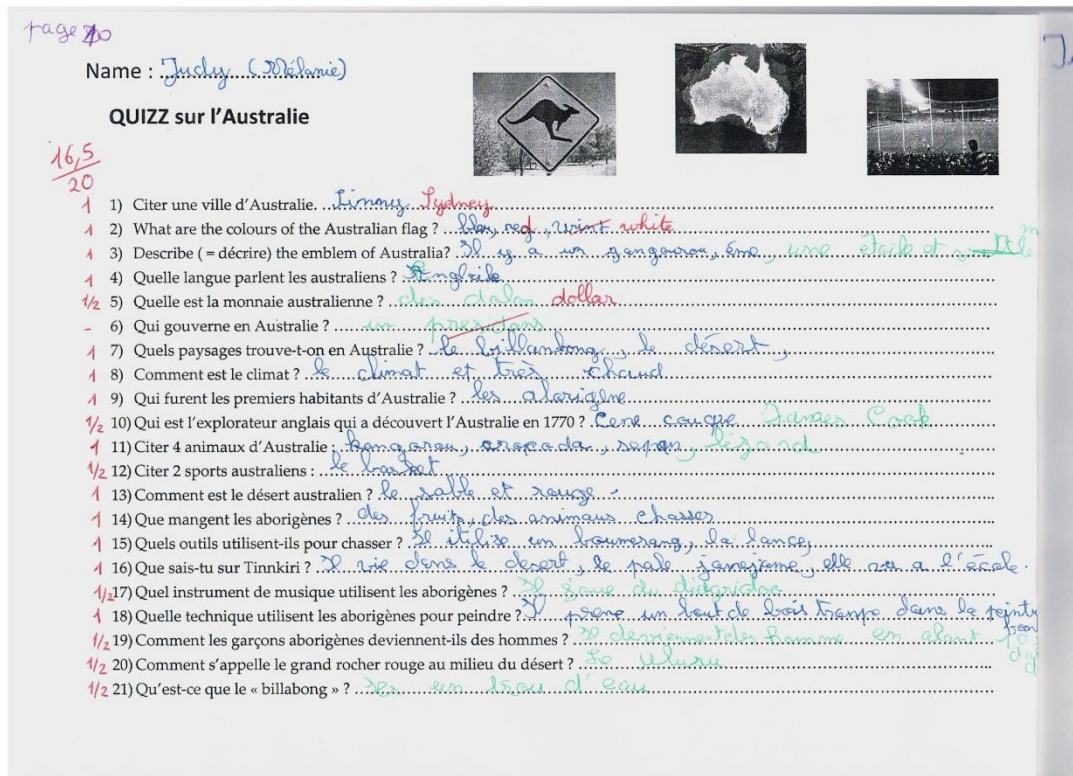 page 10
Name : Judy (Mélanie)
QUIZZ sur l'Australie
16,5
20
1 1) Citer une ville d'Australie. Sydney
1 2) What are the colours of the Australian flag ? bleu, red, white
1 3) Describe ( = décrire) the emblem of Australia? Il y a un gangourou, éme, une étoile et
1 4) Quelle langue parlent les australiens ?
1/2 5) Quelle est la monnaie australienne ? des dolas dollar
- 6) Qui gouverne en Australie ? un presidans
1 7) Quels paysages trouve-t-on en Australie ? le billanbong, le désert,
1 8) Comment est le climat ? le climat et très chaud
1 9) Qui furent les premiers habitants d'Australie ? les aborigène
1/2 10) Qui est l'explorateur anglais qui a découvert l'Australie en 1770 ? James Cook
1 11) Citer 4 animaux d'Australie : kangorou, lézard
1/2 12) Citer 2 sports australiens : le basket
1 13) Comment est le désert australien ? le sable et rouge.
1 14) Que mangent les aborigènes ? des fruits, des animaus chasses
1 15) Quels outils utilisent-ils pour chasser ? Il itilise un boumerang, la lance,
1 16) Que sais-tu sur Tinnkiri ? Il vie dans le desert, le pale elle va a l'école.
1/2 17) Quel instrument de musique utilisent les aborigènes ? Il joue du didgridoo
1 18) Quelle technique utilisent les aborigènes pour peindre ? Il prene un bout de bois tranpe dans la
1/2 19) Comment les garçons aborigènes deviennent-ils des hommes ? Il deviennent des homme en alant
1/2 20) Comment s'appelle le grand rocher rouge au milieu du désert ? Le uluru
1/2 21) Qu'est-ce que le « billabong » ? un trou d'eau